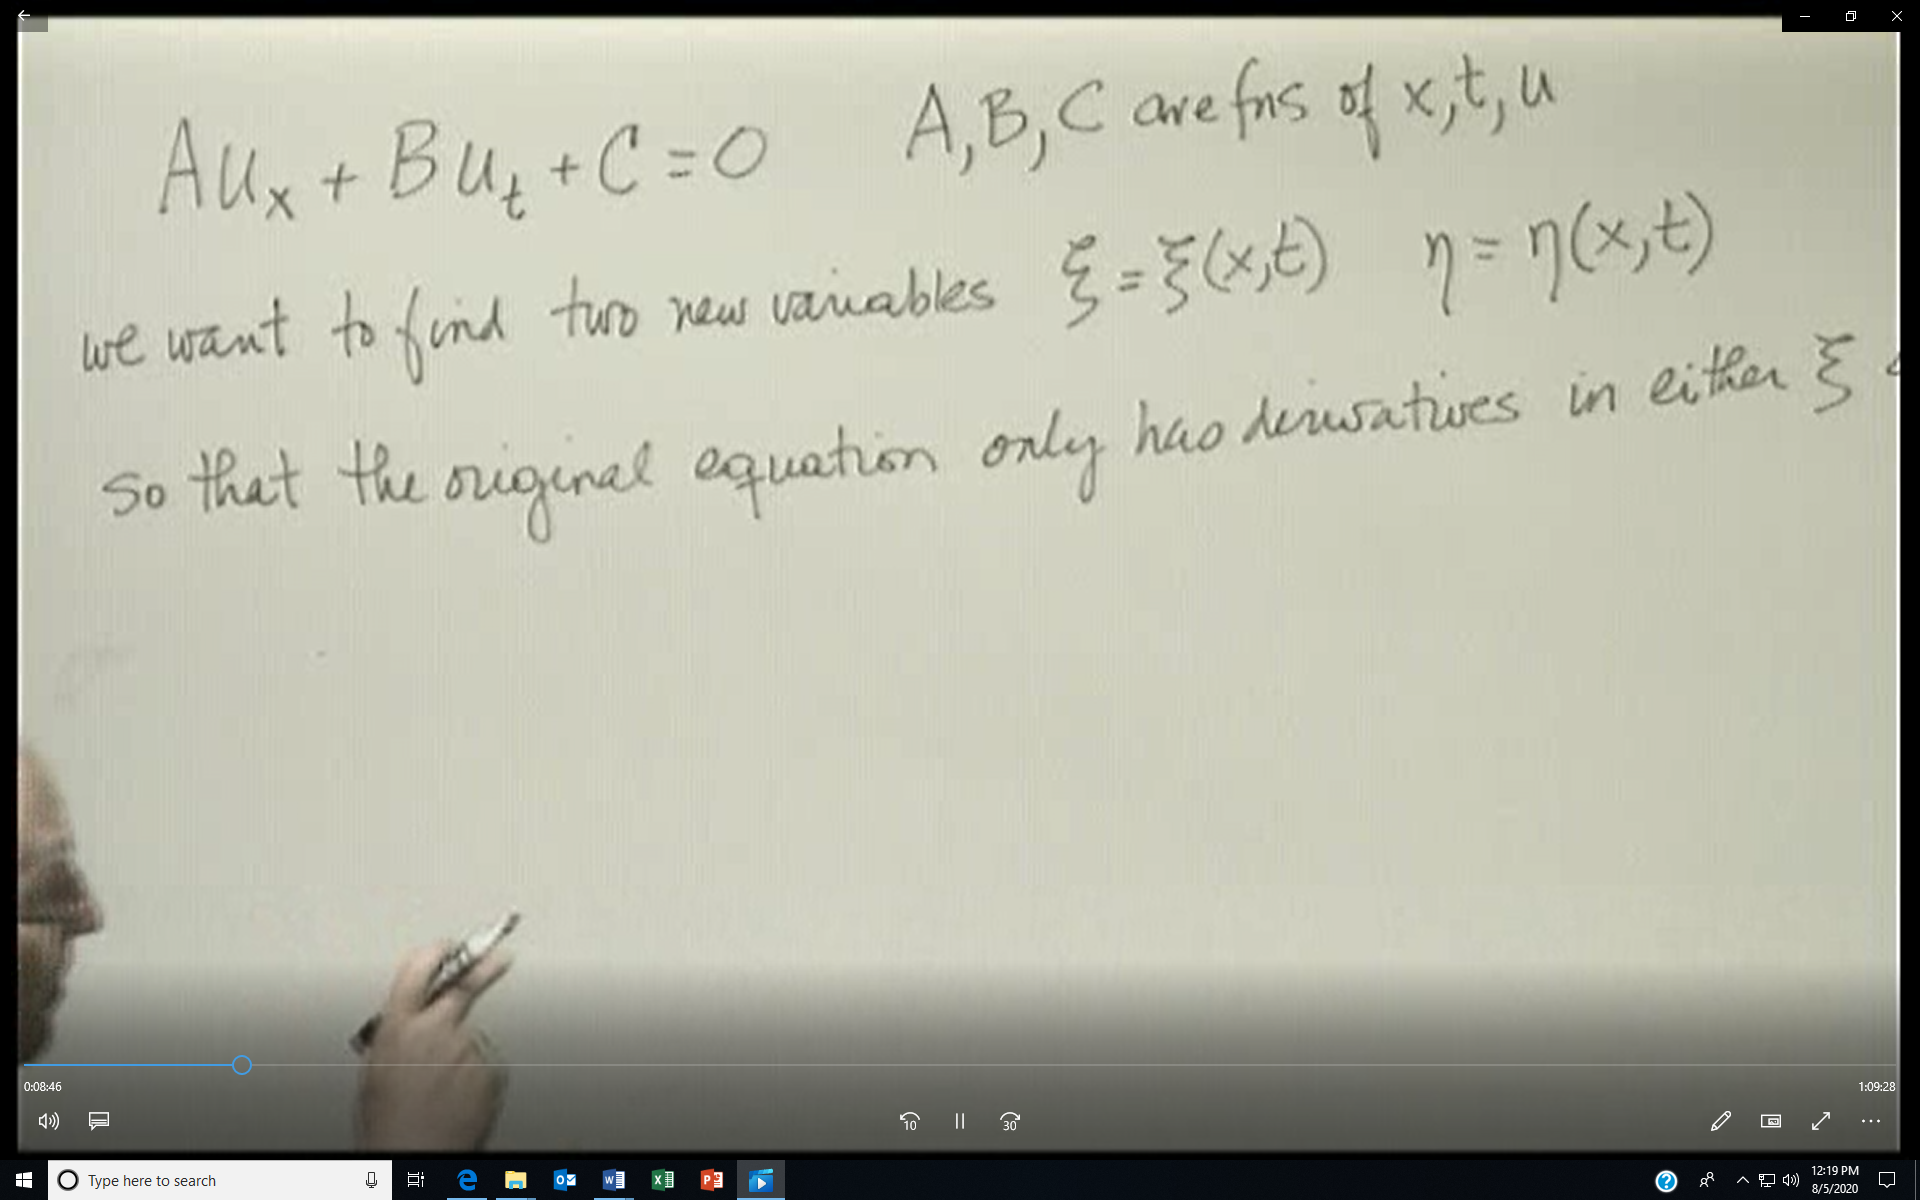 A u_x + B u_t + C = 0 A, B, C are fns of x, t, u
we want to find two new variables ξ = ξ(x,t) η = η(x,t)
so that the original equation only has derivatives in either ξ
0:08:46 1:09:28
10 30
Type here to search
12:19 PM
8/5/2020